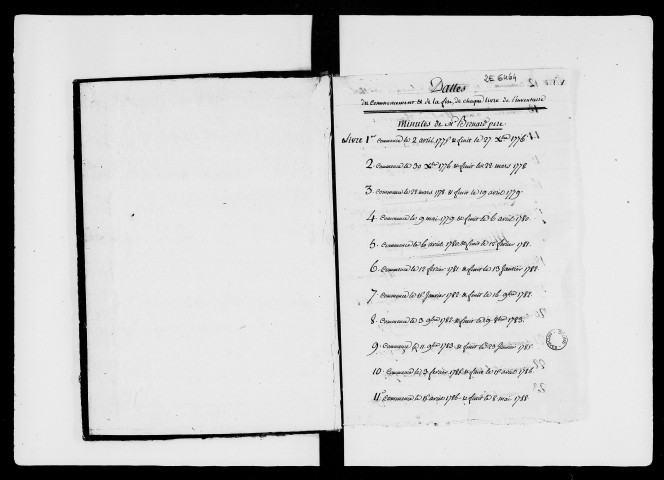 2E 6464
Dattes
du Commencement et de la fin, de chaque livre de l'inventaire
Minutes de Mr Bernard pere
Livre 1er Commence le 2 avril 1775 & finit le 27 Xbre 1776
2. Commence le 30 Xbre 1776 & finit le 22 mars 1778
3. Commence le 22 mars 1778 & finit le 19 avril 1779
4. Commence le 9 mai 1779 & finit le 6 avril 1780.
5. Commence le 6 avril 1780 & finit le 12 fevrier 1781.
6. Commence le 12 fevrier 1781 & finit le 13 Janvier 1782.
7. Commence le 15 Janvier 1782 & finit le 16 9bre 1782.
8. Commence le 3 9bre 1782 & finit le 9 8bre 1783.
9. Commence le 11 9bre 1783 & finit le 23 Janvier 1785.
10. Commence le 3 fevrier 1785 & finit le 15 avril 1786
11. Commence le 15 avril 1786 & finit le 8 mai 1788